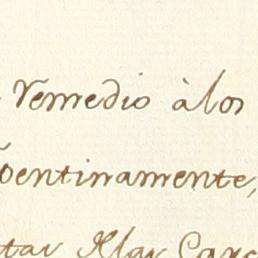 remedio à los
pentinamente,
tar Mar Carc